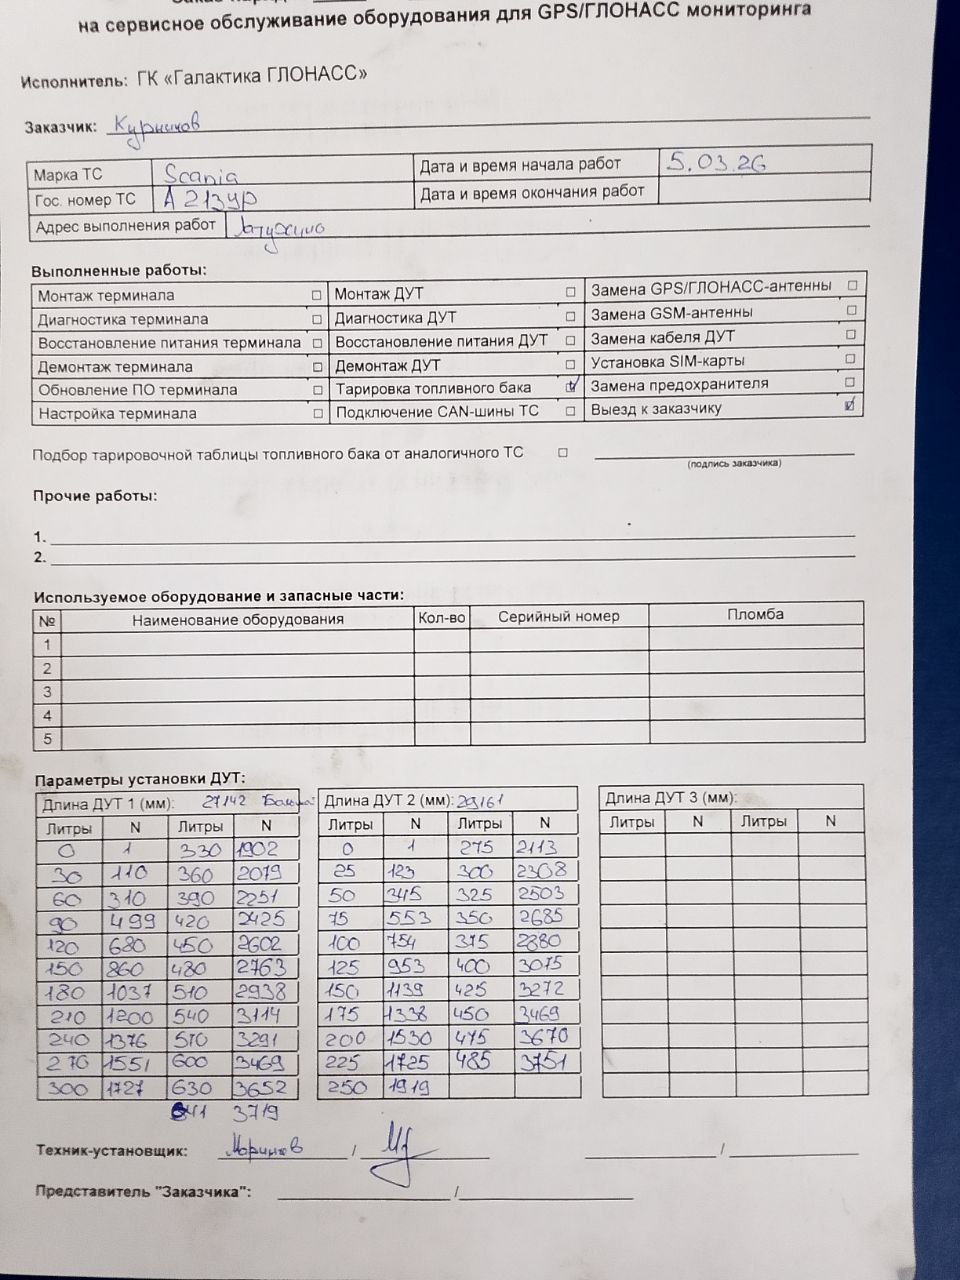 на сервисное обслуживание оборудования для GPS/ГЛОНАСС мониторинга
Исполнитель: ГК «Галактика ГЛОНАСС»
Заказчик: Курников
Марка ТС Scania Дата и время начала работ 5.03.26
Гос. номер ТС А213УР Дата и время окончания работ
Адрес выполнения работ
Выполненные работы:
Монтаж терминала □ Монтаж ДУТ □ Замена GPS/ГЛОНАСС-антенны □
Диагностика терминала □ Диагностика ДУТ □ Замена GSM-антенны □
Восстановление питания терминала □ Восстановление питания ДУТ □ Замена кабеля ДУТ □
Демонтаж терминала □ Демонтаж ДУТ □ Установка SIM-карты □
Обновление ПО терминала □ Тарировка топливного бака ☑ Замена предохранителя □
Настройка терминала □ Подключение CAN-шины ТС □ Выезд к заказчику ☑
Подбор тарировочной таблицы топливного бака от аналогичного ТС □
(подпись заказчика)
Прочие работы:
1.
2.
Используемое оборудование и запасные части:
№ Наименование оборудования Кол-во Серийный номер Пломба
1
2
3
4
5
Параметры установки ДУТ:
Длина ДУТ 1 (мм): 27142 Длина ДУТ 2 (мм): 29161 Длина ДУТ 3 (мм):
Литры N Литры N Литры N Литры N Литры N Литры N
0 1 330 1902 0 1 275 2113
30 110 360 2079 25 123 300 2308
60 310 390 2251 50 345 325 2503
90 499 420 2425 75 553 350 2685
120 680 450 2602 100 754 375 2880
150 860 480 2763 125 953 400 3075
180 1037 510 2938 150 1139 425 3272
210 1200 540 3114 175 1338 450 3469
240 1376 570 3291 200 1530 475 3670
270 1551 600 3469 225 1725 485 3751
300 1727 630 3652 250 1919
641 3719
Техник-установщик: Маринков / /
Представитель "Заказчика": /